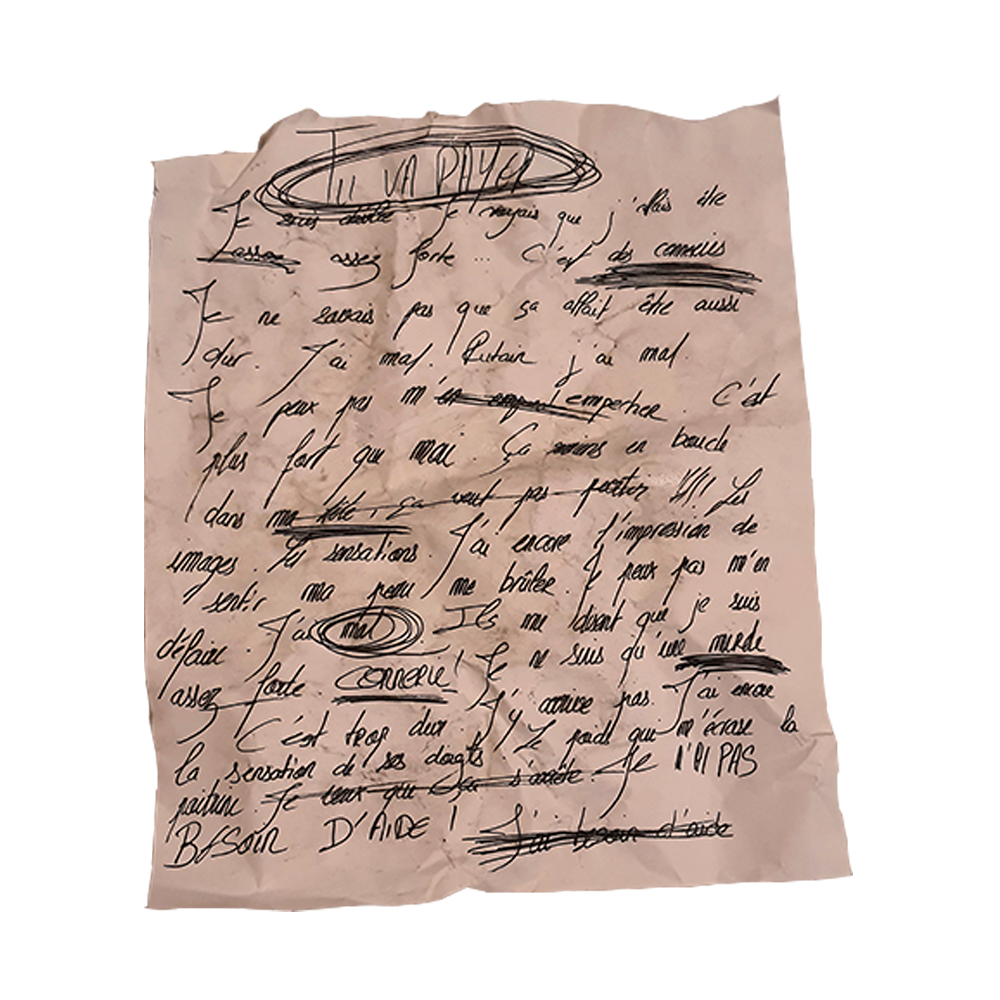 TU VA PAYER
Je suis … Je voyais que j'allais être
assez forte ... C'est des conneries
Je ne savais pas que ça allait être aussi
dur. J'ai mal. Putain j'ai mal.
Je peux pas m'en empêcher. C'est
plus fort que moi. Ça … en boucle
dans ma tête, ça veut pas partir !!! Les
images. Les sensations. J'ai encore l'impression de
sentir ma peau me brûler. Je peux pas m'en
défaire. J'ai mal. Ils me disent que je suis
assez forte. CONNERIE ! Je ne suis qu'une merde
C'est trop dur. J'y arrive pas. J'ai encore
la sensation de ses doigts !! Le poids qui m'écrase la
poitrine Je veux que ça s'arrête Je N'AI PAS
BESOIN D'AIDE ! J'ai besoin d'aide